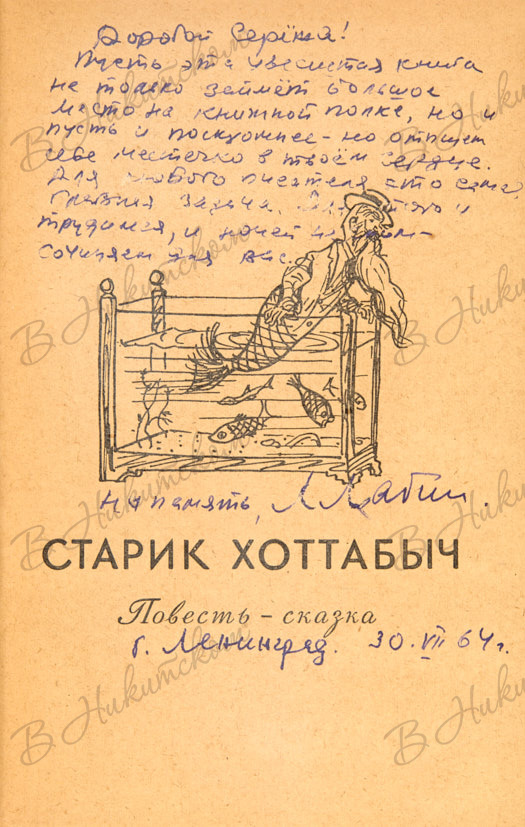 Дорогой Серёжа!
Пусть эта увесистая книга
не только займёт большое
место на книжной полке, но и
пусть и поскромнее - но отыщет
себе местечко в твоём сердце.
Для любого писателя это самая
главная задача. Для этого и
трудимся, и ночей не спим -
сочиняем для вас.
На память, Л Лагин.
СТАРИК ХОТТАБЫЧ
Повесть - сказка
г. Ленинград. 30. VII 64 г.
В Никитском
В Никитском
В Никитском
В Никитском
В Никитском
В Никитском
В Никитском
В Никитском